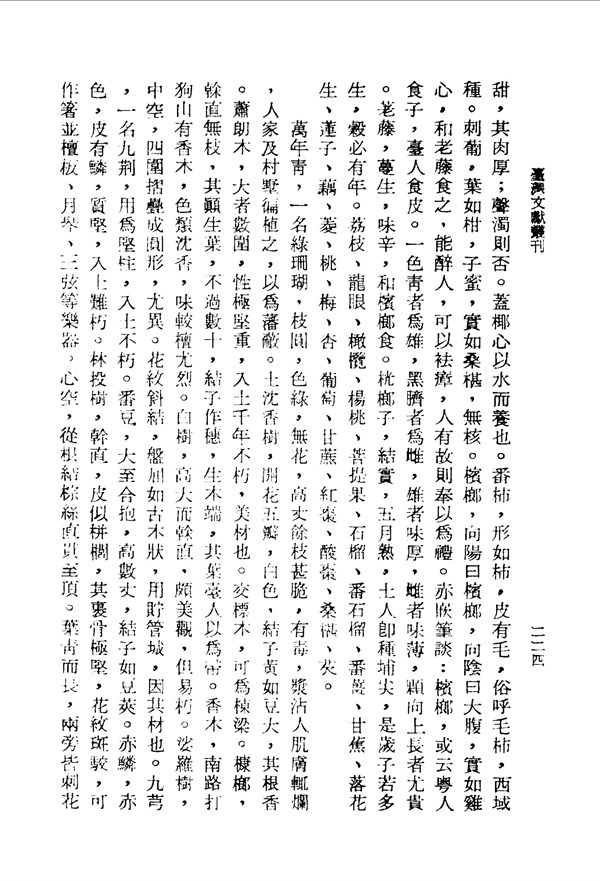 臺灣文獻叢刊
二二四
甜，其肉厚；聲濁則否。蓋椰心以水而養也。番柿，形如柿，皮有毛，俗呼毛柿，西域
種。刺葡，葉如柑，子蜜，實如桑椹，無核。檳榔，向陽曰檳榔，向陰曰大腹，實如雞
心，和老藤食之，能醉人，可以袪瘴，人有故則奉以爲禮。赤嵌筆談：檳榔，或云粤人
食子，臺人食皮。一色青者爲雄，黑臍者爲雌，雄者味厚，雌者味薄，顆向上長者尤貴
。荖藤，蔓生，味辛，和檳榔食。桄榔子，結實，五月熟，土人卽種埔尖，是歲子若多
生，穀必有年。荔枝、龍眼、橄欖、楊桃、菩提果、石榴、番石榴、番薑、甘蕉、落花
生、蓮子、藕、菱、桃、梅、杏、葡萄、甘蔗、紅棗、酸棗、桑椹、芡。
萬年青，一名綠珊瑚，枝圓，色綠，無花，高丈餘枝甚脆，有毒，漿沾人肌膚輒爛
，人家及村墅徧植之，以爲藩蔽。土沈香樹，開花五瓣，白色，結子黃如豆大，其根香
。蕭朗木，大者數圍，性極堅重，入土千年不朽，美材也。交標木，可爲棟梁。槺榔，
榦直無枝，其顚生葉，不過數十，結子作穗，生木端，其葉臺人以爲帚。香木，南路打
狗山有香木，色類沈香，味較檀尤烈。白樹，高大而榦直，頗美觀，但易朽。娑羅樹，
中空，四圍摺疊成圓形，尤異。花紋斜結，盤屈如古木狀，用貯管城，因其材也。九芎
，一名九荆，用爲堅柱，入土不朽。番豆，大至合抱，高數丈，結子如豆莢。赤鱗，赤
色，皮有鱗，質堅，入土難朽。林投樹，幹直，皮似栟櫚，其裏骨極堅，花紋斑駮，可
作箸並檀板、月琴、三弦等樂器，心空，從根結棕絲直貫至頂。葉青而長，兩旁皆刺花